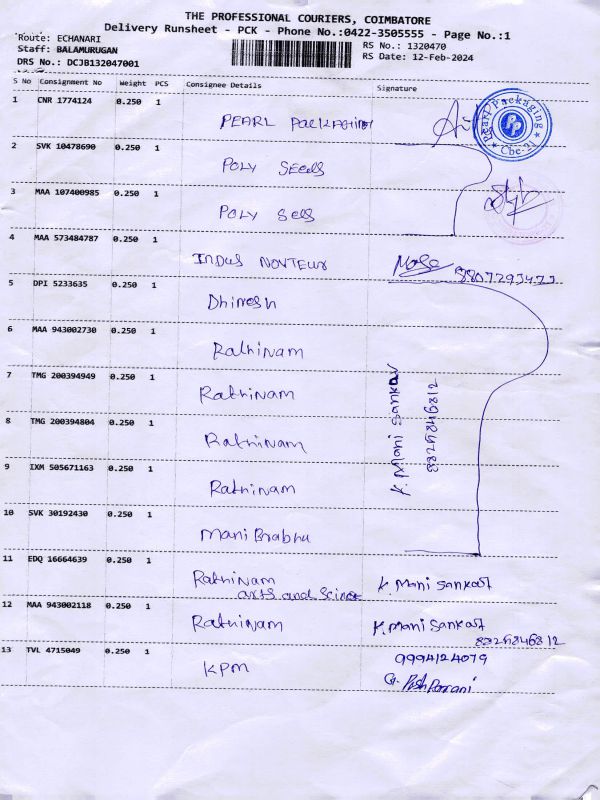 THE PROFESSIONAL COURIERS, COIMBATORE
Delivery Runsheet - PCK - Phone No.:0422-3505555 - Page No.:1
Route: ECHANARI
Staff: BALAMURUGAN
DRS No.: DCJB132047001
RS No.: 1320470
RS Date: 12-Feb-2024
S No Consignment No Weight PCS Consignee Details Signature
1 CNR 1774124 0.250 1
PEARL Packaging
Pearl Packaging
PP
Cbe-21
2 SVK 10478690 0.250 1
POLY SEEdS
3 MAA 107400985 0.250 1
POLY SEdS
4 MAA 573484787 0.250 1
INDUS NOVTEUR
8807293473
5 DPI 5233635 0.250 1
Dhinesh
6 MAA 943002730 0.250 1
Rathinam
7 TMG 200394949 0.250 1
Rathinam
K. Mani Sankar
8 TMG 200394804 0.250 1
Rathinam
9 IXM 505671163 0.250 1
Rathinam
10 SVK 30192430 0.250 1
Mani Brabhu
11 EDQ 16664639 0.250 1
Rathinam
arts and Science
K. Mani Sankar
12 MAA 943002118 0.250 1
Rathinam
K. Mani Sankar
13 TVL 4715049 0.250 1
KPM
9994124079